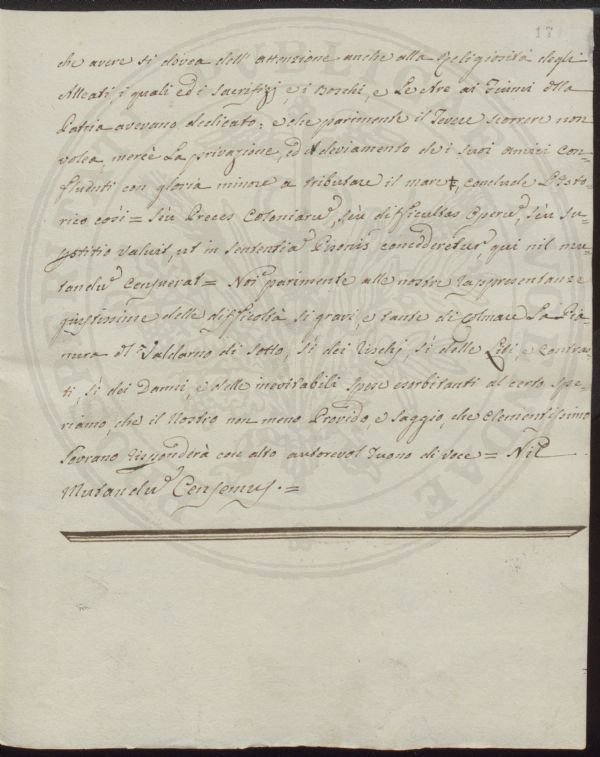 17
che avere si dovea dell' attenzione anche alla Religiosità degli
Alleati, i quali ed i Sacrifizj, e i Boschi, e Le Are ai Fiumi della
Patria avevano dedicato; e che parimente il Tevere scorrere non
volea, mercè La privazione, ed il deviamento de i suoi amici con=
fluenti con gloria minore a tributare il mare, conclude L'Isto=
rico così = seu Preces Coloniarũ, seu difficultas Operũ, seu su=
perstitio valuit, ut in sententiã Pisonis concederetur, qui nil mu=
tandũ Censuerat = Noi parimente alle nostre rappresentanze
giustissime delle difficoltà sì gravi, e tante di Colmare La Pia=
nura di Valdarno di sotto, sì dei Rischj, sì delle Liti, e contras=
ti, sì dei Danni, e delle inevitabili spese esorbitanti al certo spe=
riamo, che il Nostro non meno Provido, e saggio, che Clementissimo
Sovrano risponderà con alto autorevol Tuono di voce = Nil
Mutandũ Censemus. =